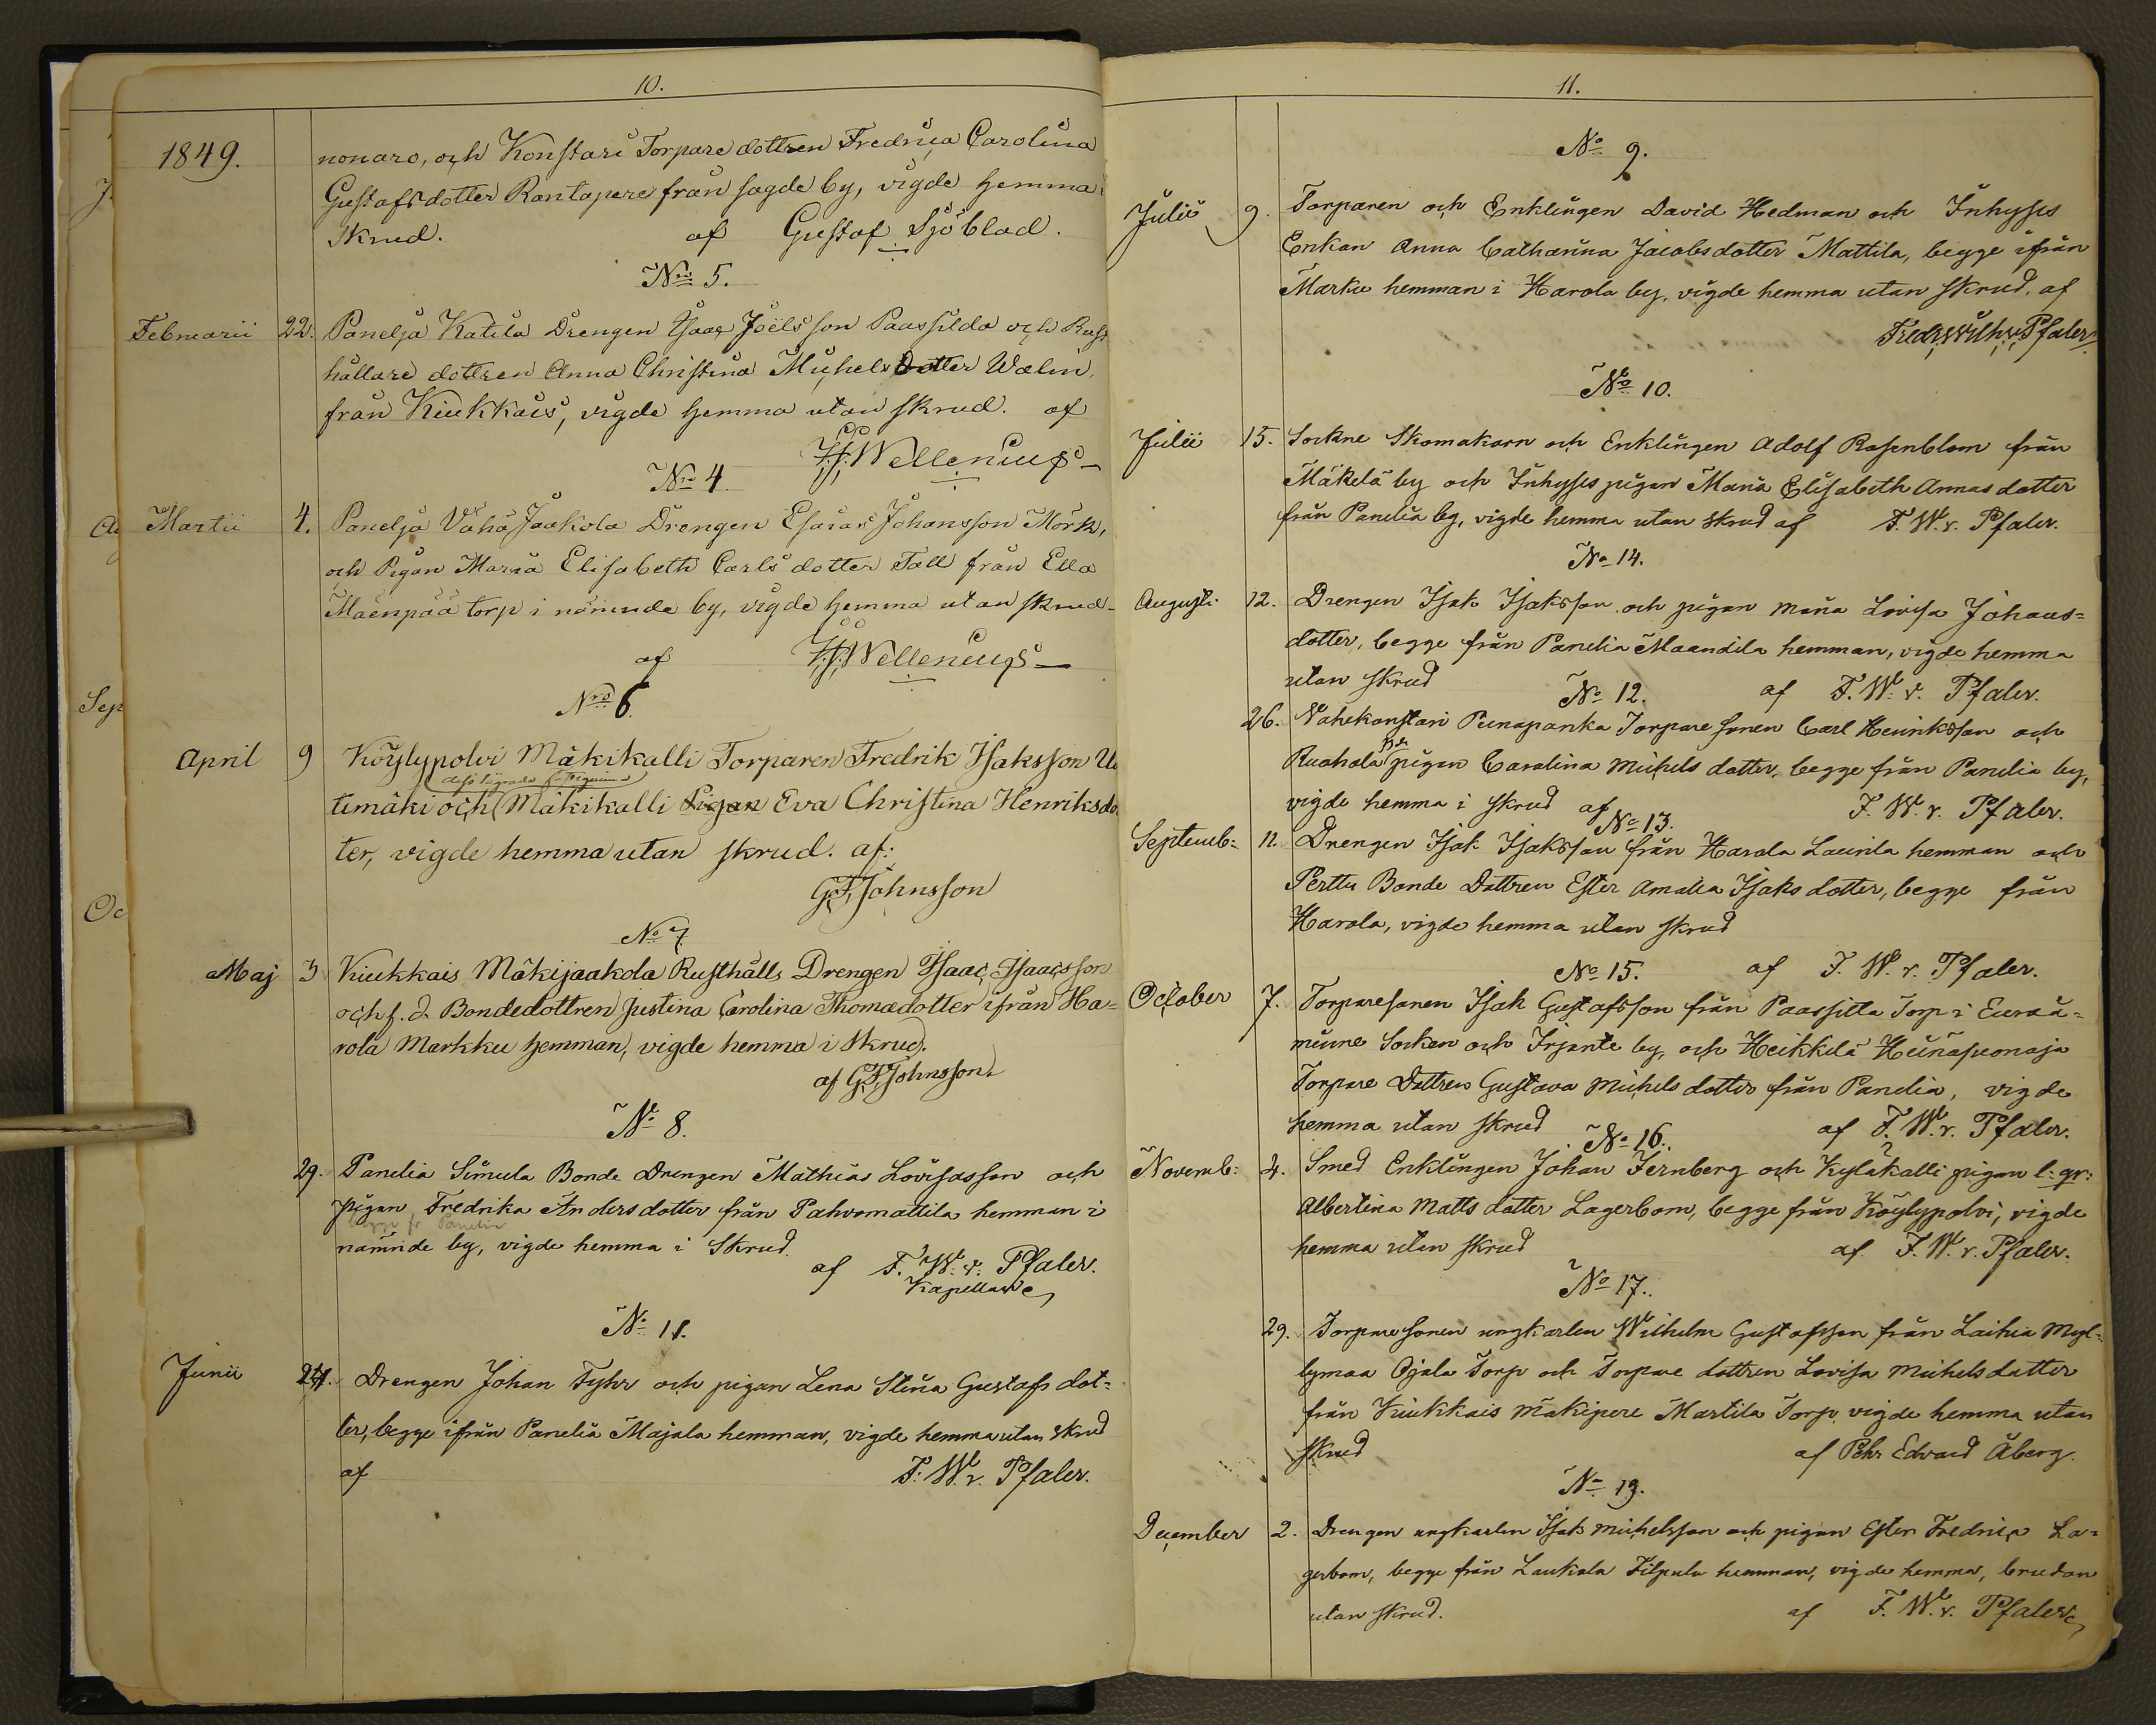 10.
1849.
nonaro, och Konstari Torpare dottren Fredrica Carolina
Gustafsdotter Rantapere från sagde by, vigde hemma i
Skrud. af Gustaf Sjöblad.
No 5.
Februarii 22. Panelja Katila Drengen Isaac Joëlsson Paassilda och Rust
hållare dottren Anna Christina Michels Dotter Walin,
från Kiukkais, vigde hemma utan skrud. af
H. Wellenius
No 4.
Martii 4. Panelja Vähä Jaakola Drengen Esaias Johansson Mörk,
och Pigan Maria Elisabeth Carls dotter Tall från Ella
Mäenpää torp i nämnde by, vigde hemma utan skrud
af H. Wellenius
Nro 6.
April 9 Köylypolvi Mäkikalli Torparen Fredrik Isaksson U
timäki och Mäkikalli Pigan Eva Christina Henriksdo
ter, vigde hemma utan skrud. af:
G F Johnsson
No 7
Maj 3 Kiukkais Mäkijaakola Rusthålls Drengen Isaac Isaacsson
och f. d. Bondedottren Justina Carolina Thomædotter ifrån Ha=
rola Markku hemman, vigde hemma i skrud.
af G F Johnsson
No 8.
29. Panelia Simula Bonde Drengen Mathias Lovisasson och
pigan Fredrika Andersdotter från Pahvomattila hemman i
begge fr Panelia
nämnde by, vigde hemma i Skrud.
af F. W. v. Pfaler.
Kapellan
No 11.
Junii 24. Drengen Johan Fyhr och pigan Lena Stina Gustafs dot=
ter, begge ifrån Panelia Majala hemman, vigde hemma utan skrud
af F. W. v. Pfaler.
11.
No 9.
Julii 9. Torparen och Enklingen David Hedman och Inhyses
Enkan Anna Catharina Jacobsdotter Mattila, begge ifrån
Marku hemman i Harola by, vigde hemma utan skrud, af
Fredr. Wilh. v. Pfaler
No 10.
Julii 15. Sockne Skomakarn och Enklingen Adolf Rosenblom från
Mäkelä by och Inhyses pigan Maria Elisabeth Annas dotter
från Panelia by, vigde hemma utan skrud af F. W. v. Pfaler.
No 14.
Augusti 12. Drengen Isak Isaksson och pigan Maria Lovisa Johans=
dotter, begge från Panelia Maandila hemman, vigde hemma
utan skrud af F. W. v. Pfaler.
No 12.
26. Vahekonstari Punapanka Torpare sonen Carl Henriksson och
Ruohola pigan Carolina Michels dotter, begge från Panelia by,
vigde hemma i skrud af F. W. v. Pfaler.
No 13.
Septemb: 11. Drengen Isak Isaksson från Harola Laurila hemman och
Perttu Bonde Dottren Ester Amalia Isaks dotter, begge från
Harola, vigde hemma utan skrud
af F. W. v. Pfaler.
No 15.
October 7. Torparesonen Isak Gustafsson från Paassilta Torp i Euraå=
minne Socken och Irjante by, och Heikkilä Heinäsuonoja
Torpare Dottren Gustava Michels dotter från Panelia, vigde
hemma utan skrud af F. W. v. Pfaler.
No 16.
Novemb: 4. Smed Enklingen Johan Jernberg och Kyläkalli pigan l: gr:
Albertina Matts dotter Lagerbom, begge från Köylypolvi, vigde
hemma utan skrud af F. W. v. Pfaler.
No 17.
29. Torpare sonen ungkarlen Wilhelm Gustafsson från Laihia Myl=
lymaa Ojala Torp och Torpare dottren Lovisa Michels dotter
från Kiukkais Mäkipere Martila Torp, vigde hemma utan
skrud af Pehr Edvard Åberg.
No 19.
December 2. Drengen ungkarlen Isak Michelsson och pigan Ester Fredrica La=
gerbom, begge från Laukola Filpula hemman, vigde hemma, brudan
utan skrud. af F. W. v. Pfaler